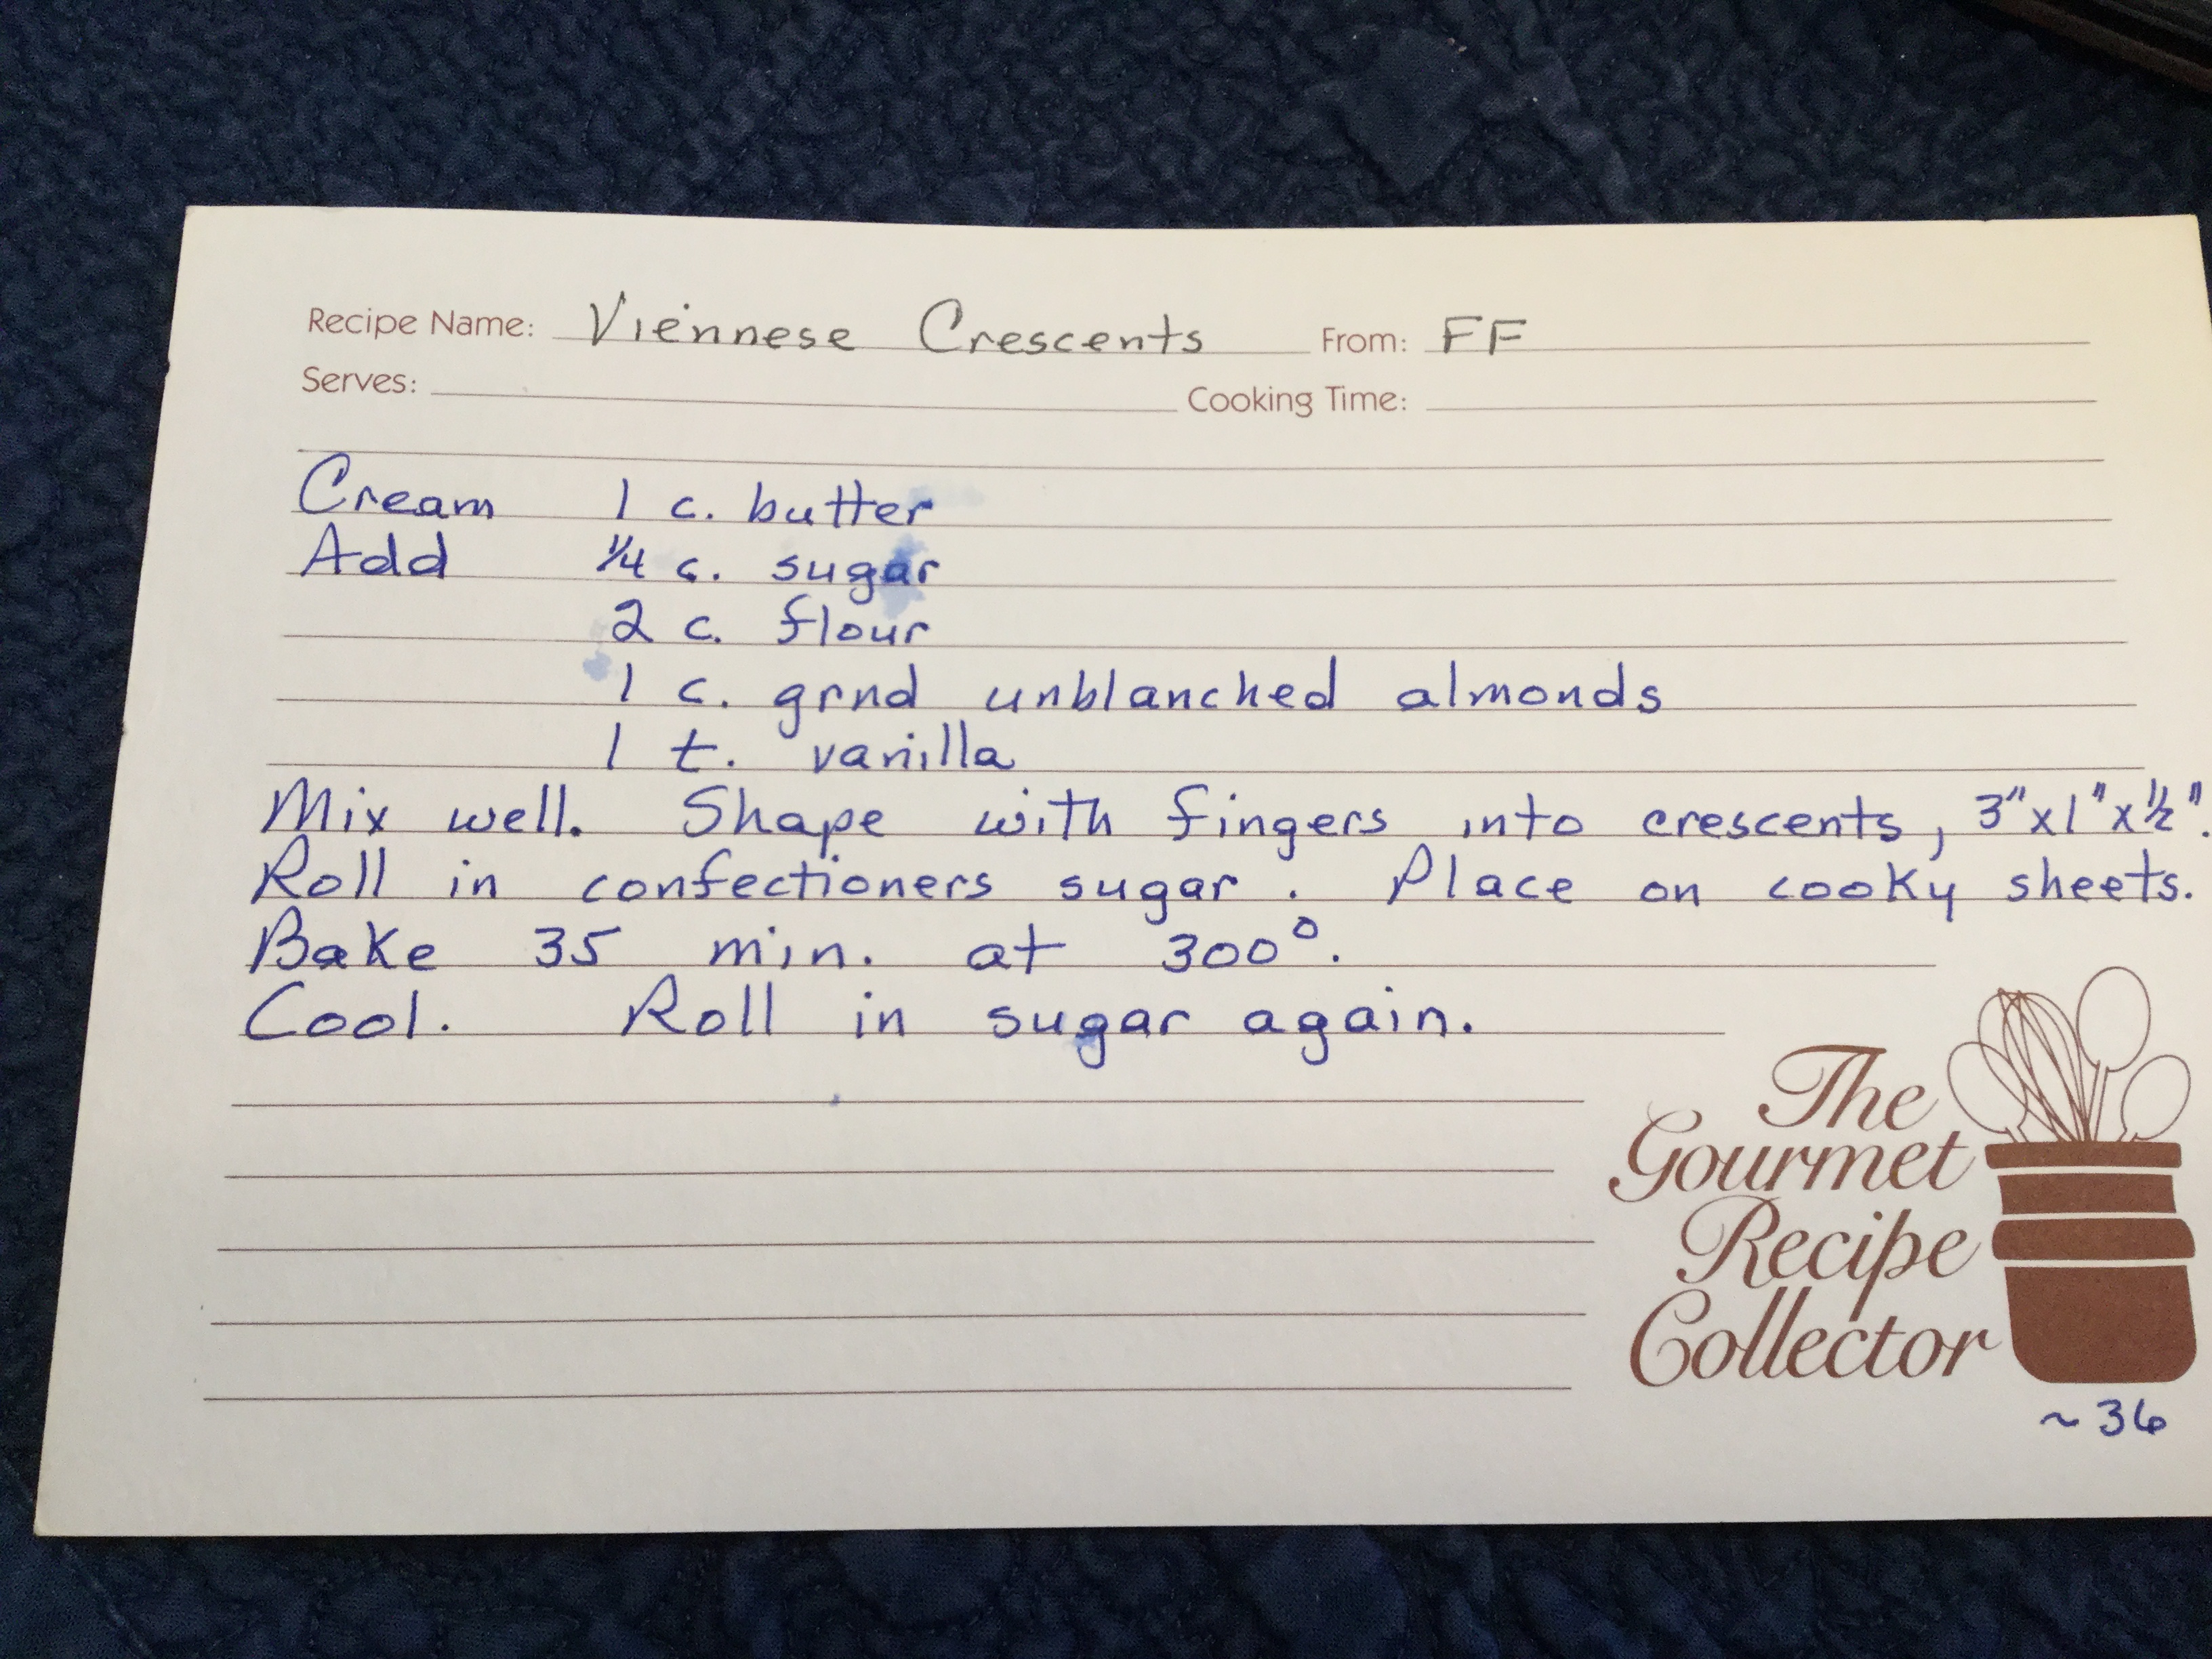 Recipe Name: Viennese Crescents From: FF
Serves: Cooking Time:
Cream 1 c. butter
Add 1/4 c. sugar
2 c. flour
1 c. grnd unblanched almonds
1 t. vanilla
Mix well. Shape with fingers into crescents, 3"x1"x1/2".
Roll in confectioners sugar. Place on cooky sheets.
Bake 35 min. at 300°.
Cool. Roll in sugar again.
The
Gourmet
Recipe
Collector
~36